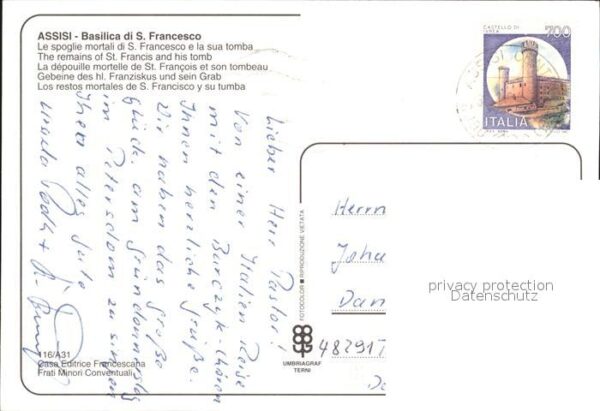 ASSISI - Basilica di S. Francesco
Le spoglie mortali di S. Francesco e la sua tomba
The remains of St. Francis and his tomb
La dépouille mortelle de St. François et son tombeau
Gebeine des hl. Franziskus und sein Grab
Los restos mortales de S. Francisco y su tumba
CASTELLO DI
IVREA
700
ITALIA
Lieber Herr Pastor!
Von einer Italien Reise
mit den Burczyk-Chören
Ihnen herzliche Grüße.
Wir haben das große
Glück, am Gründonnerstag
im Petersdom zu singen
Ihnen alles Gute
Herrn
Joha
Dan
48291 T
privacy protection
Datenschutz
FOTOCOLOR RIPRODUZIONE VIETATA
UMBRIAGRAF
TERNI
116/A31
Casa Editrice Francescana
Frati Minori Conventuali